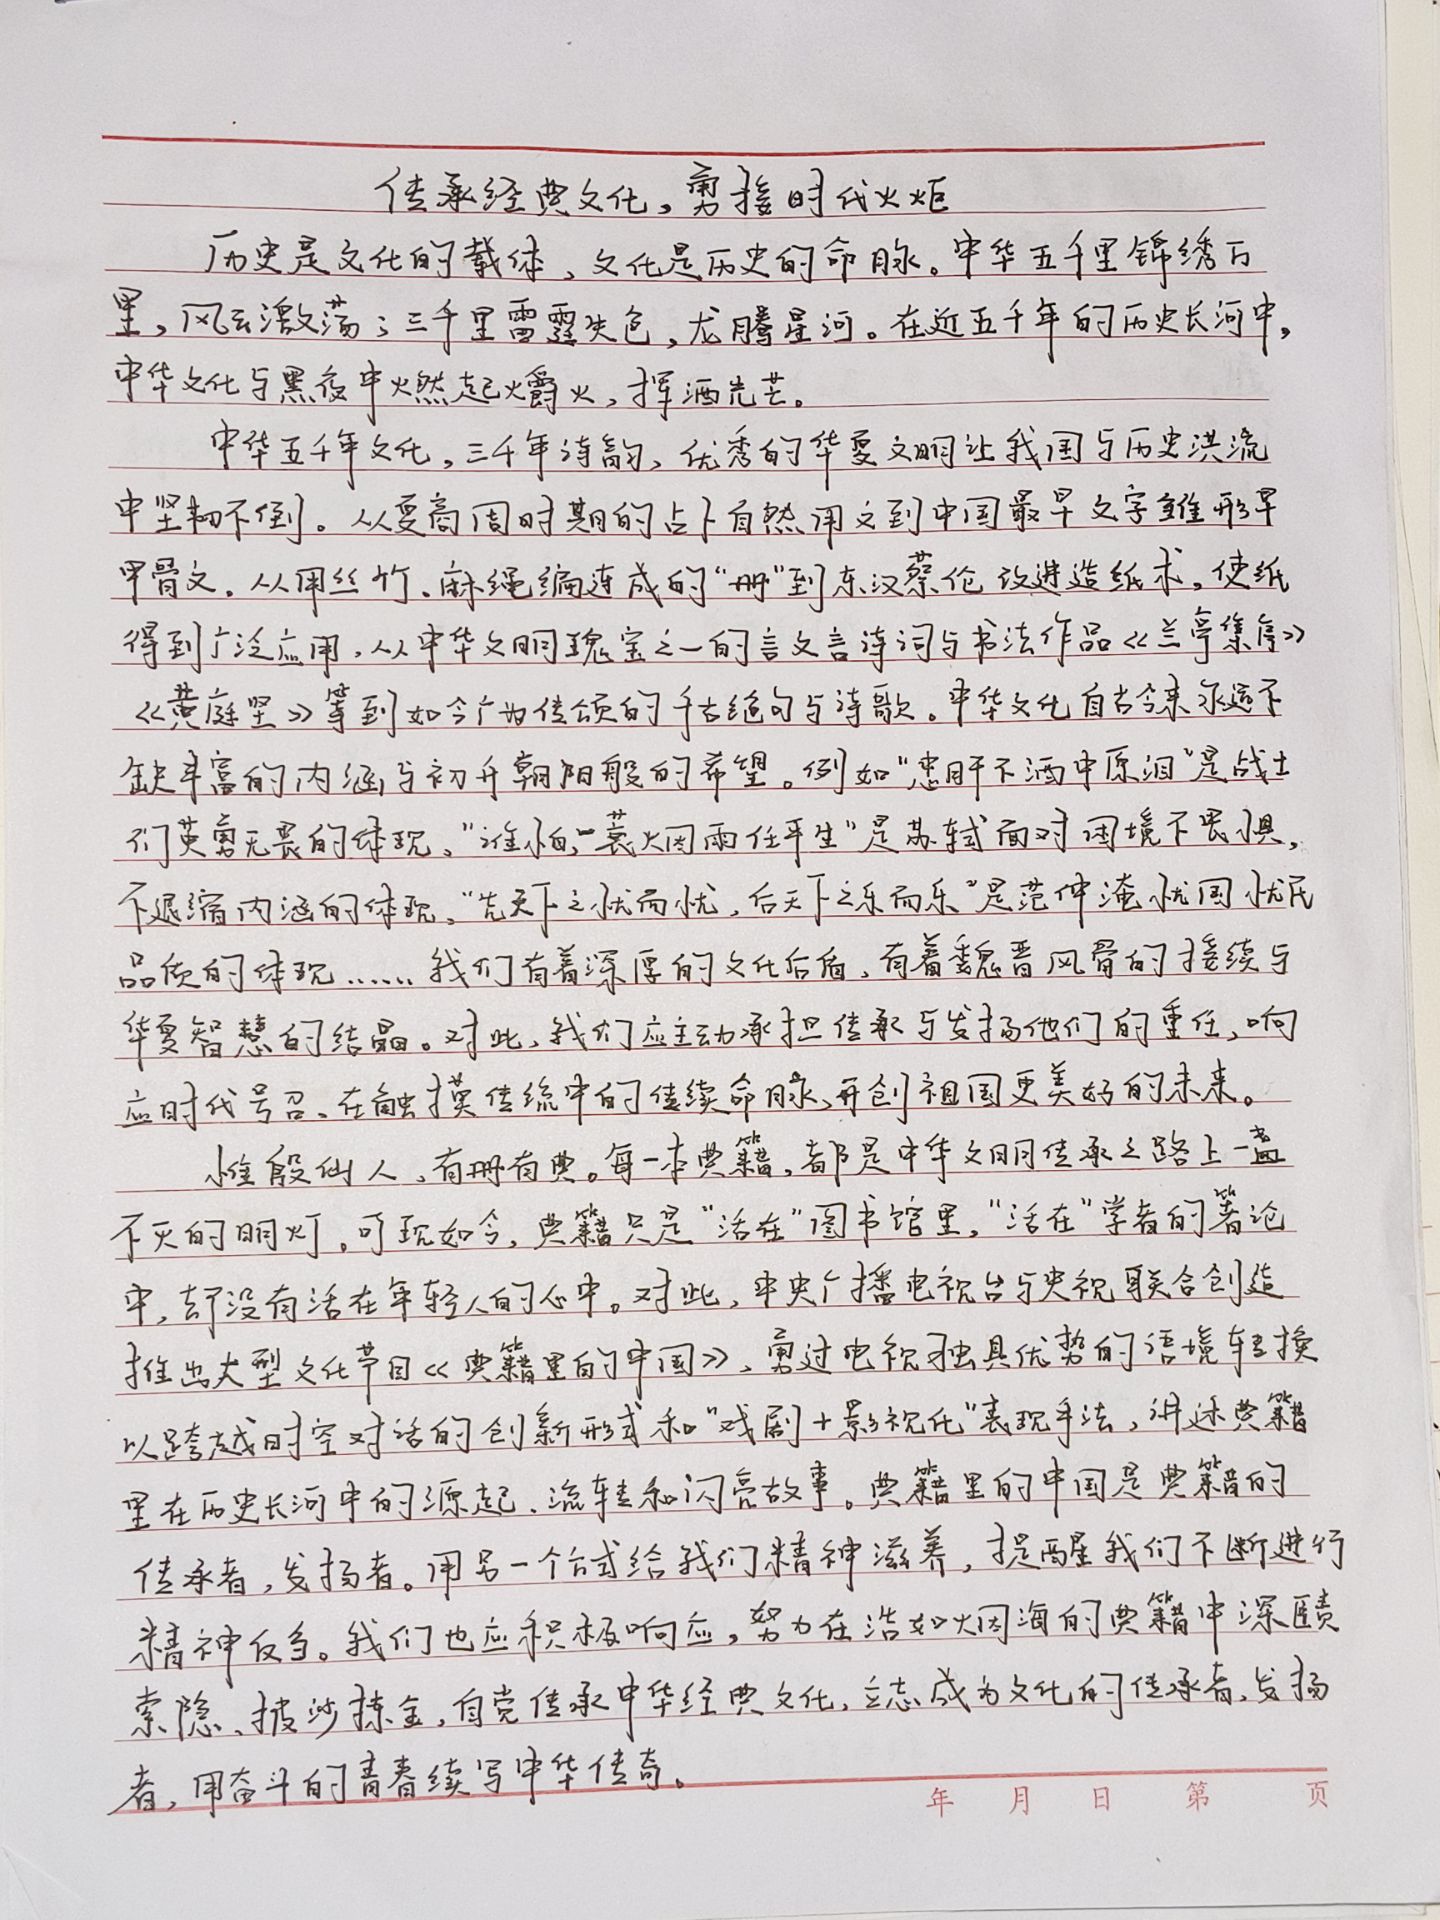 传承经典文化，勇接时代火炬
历史是文化的载体，文化是历史的命脉。中华五千里锦绣万
里，风云激荡；三千里雷霆失色，龙腾星河。在近五千年的历史长河中，
中华文化与黑夜中燃起爝火，挥洒光芒。
中华五千年文化，三千年诗韵，优秀的华夏文明让我国与历史洪流
中坚韧不倒。从夏商周时期的占卜自然用文到中国最早文字雏形早
甲骨文。从用丝竹、麻绳编连成的“册”到东汉蔡伦改进造纸术，使纸
得到广泛应用，从中华文明瑰宝之一的言文言诗词与书法作品《兰亭集序》
《黄庭坚》等到如今广为传颂的千古绝句与诗歌。中华文化自古今来永远不
缺丰富的内涵与初升朝阳般的希望。例如“忠肝不洒中原泪”是战士
们英勇无畏的体现，“谁怕，一蓑烟雨任平生”是苏轼面对困境不畏惧，
不退缩内涵的体现，“先天下之忧而忧，后天下之乐而乐”是范仲淹忧国忧民
品质的体现……我们有着深厚的文化后盾，有着魏晋风骨的接续与
华夏智慧的结晶。对此，我们应主动承担传承与发扬他们的重任，响
应时代号召、在触摸传统中的传续命脉，再创祖国更美好的未来。
惟殷仙人，有册有典。每一本典籍，都是中华文明传承之路上一盏
不灭的明灯。可现如今，典籍只是“活在”图书馆里，“活在”学者的著论
中，却没有活在年轻人的心中。对此，中央广播电视台与央视联合创造
推出大型文化节目《典籍里的中国》，勇过电视独具优势的语境转换
以跨越时空对话的创新形式和“戏剧+影视化”表现手法，讲述典籍
里在历史长河中的源起、流转和闪亮故事。典籍里的中国是典籍的
传承者，发扬者。用另一个方式给我们精神滋养，提醒我们不断进行
精神反刍。我们也应积极响应，努力在浩如烟海的典籍中深赜
索隐、披沙拣金，自觉传承中华经典文化，立志成为文化的传承者、发扬
者，用奋斗的青春续写中华传奇。
年 月 日 第 页